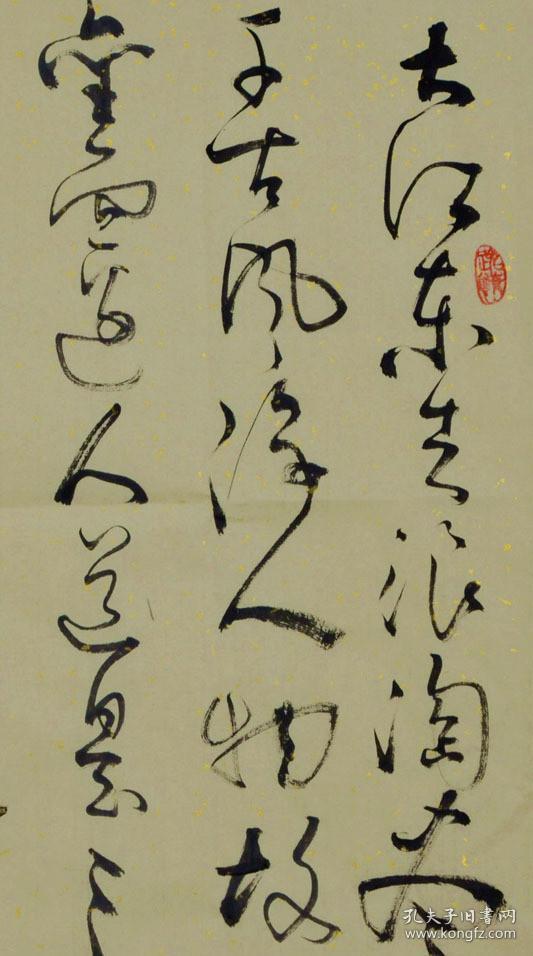 大江东去浪淘尽
千古风流人物故
垒西边人道是三
孔夫子旧书网
www.kongfz.com